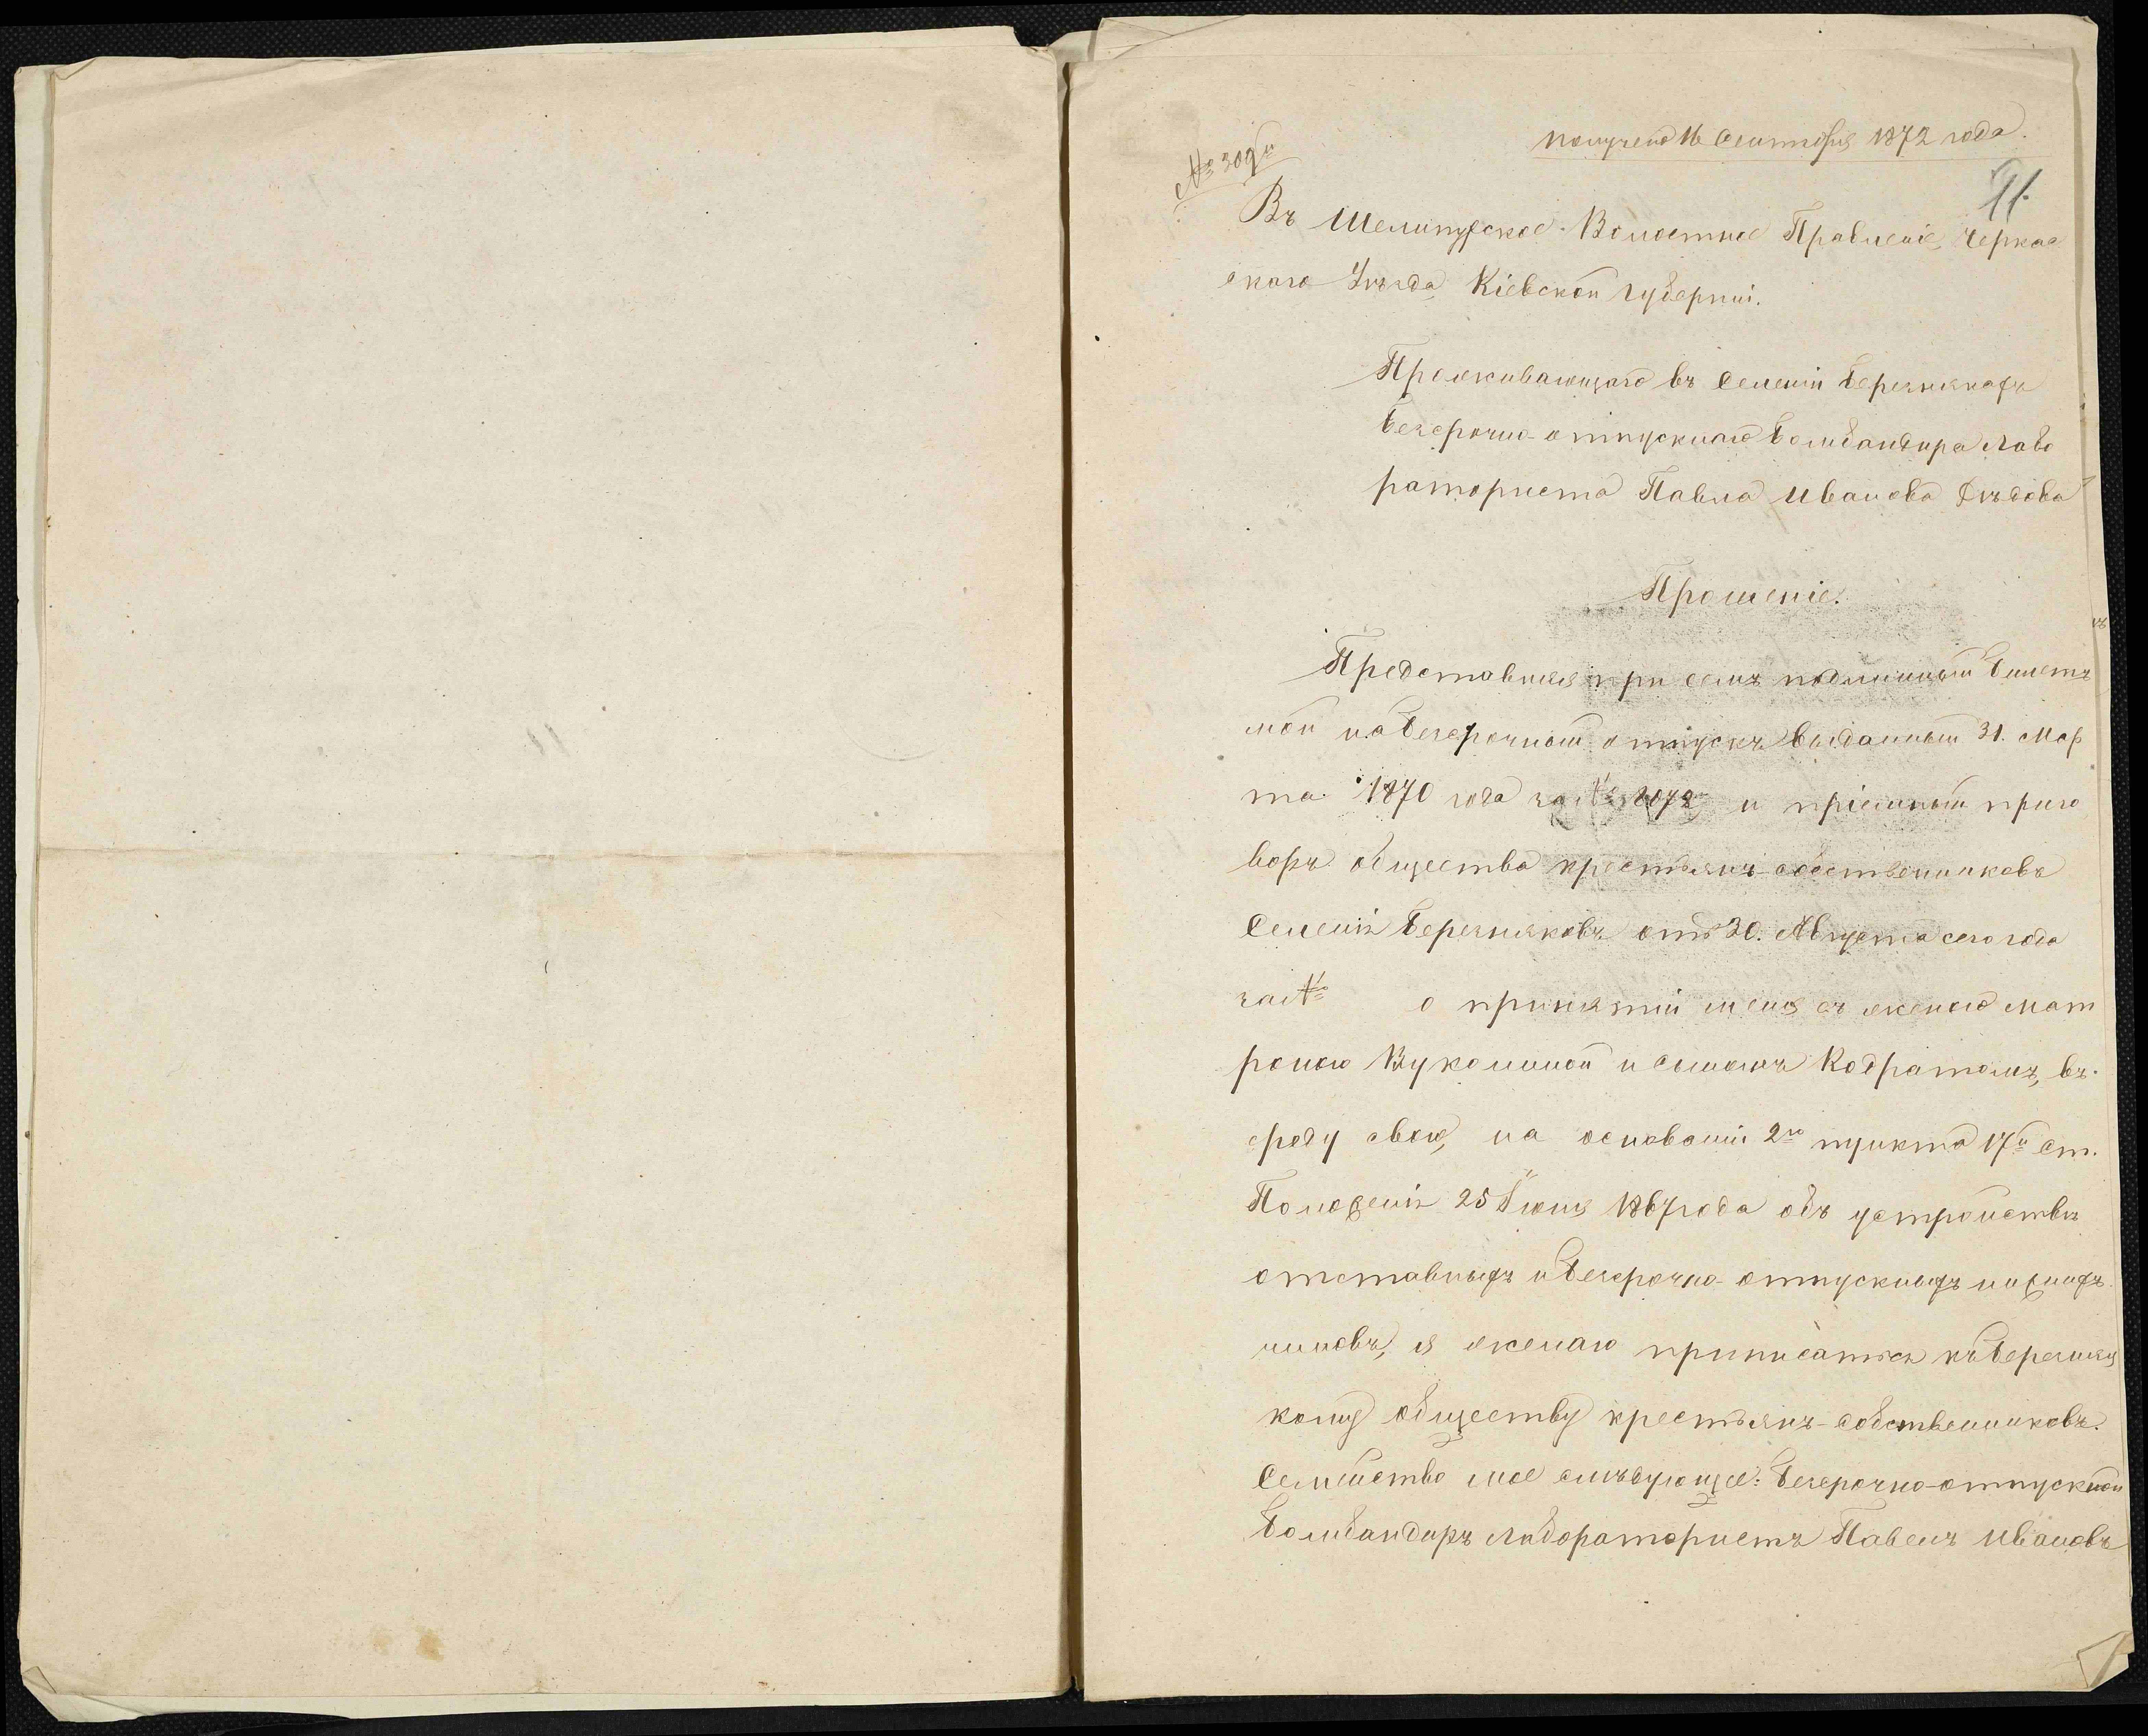 получено 16 Сентября 1872 года.
№ 309й
91.
Въ Шелипурское Волостное Правленіе, Черкас
скаго Уѣзда, Кіевской губерніи.
Проживающаго въ селеніи Березнякахъ
безсрочно-отпускнаго бомбандира лабо
раториста Павла Иванова Дѣдова
Прошеніе.
Представляя при семъ подлинный билетъ
мой на безсрочный отпускъ выданный 31. Мар
та 1870 года за № 2072 и пріемный приго
воръ общества крестьянъ-собственниковъ
селенія Березняковъ отъ 30. Августа сего года
за № о принятіи меня съ женою Мат
роною Вуколиной и сыномъ Кодратомъ, въ
среду свою, на основаніи 2го пункта 17й ст.
Положенія 25 Іюня 1867 года объ устройствѣ
отставныхъ и безсрочно-отпускныхъ нижнихъ
чиновъ, я желаю приписаться къ Березняц
кому обществу крестьянъ-собственниковъ.
Семейство мое слѣдующее: безсрочно-отпускной
бомбандиръ лаборатористъ Павелъ Ивановъ